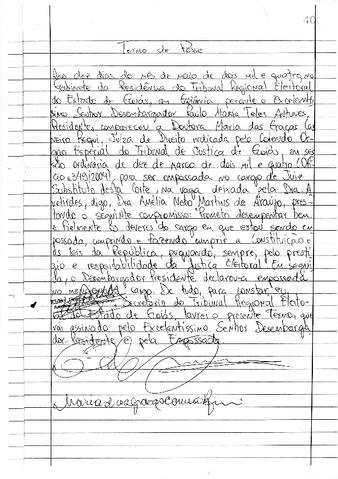 40
Termo de Posse
Aos dez dias do mês de maio de dois mil e quatro, no
Gabinete da Presidência do Tribunal Regional Eleitoral
do Estado de Goiás, em Goiânia, perante o Excelentís-
simo Senhor Desembargador Paulo Maria Teles Antunes,
Presidente, compareceu a Doutora Maria das Graças Ca
neiro Requi, Juíza de Direito indicada pelo Colendo Ór
gão Especial do Tribunal de Justiça de Goiás, em ses
são ordinária de dez de março de dois mil e quatro (Ofí
cio 349/2004), para ser empossada no cargo de Juiz
Substituto desta Corte, na vaga deixada pela Dra. A
vetirdes, digo, Dra Amélia Neto Martins de Araújo, pres-
tando o seguinte compromisso: Prometo desempenhar bem
e fielmente os deveres do cargo em que estou sendo em
possada, cumprindo e fazendo cumprir a Constituição e
as leis da República, pugnando, sempre, pelo prestí
gio e respeitabilidade da Justiça Eleitoral! Em segui
da, o Desembargador Presidente declarou-a empossada
no mencionado cargo. De tudo, para constar eu,
Secretário do Tribunal Regional Eleito-
ral do Estado de Goiás, lavrei o presente Termo, que
vai assinado pelo Excelentíssimo Senhor Desembarga
dor Presidente e pela Empossada.
Maria das Graças Carneiro Requi